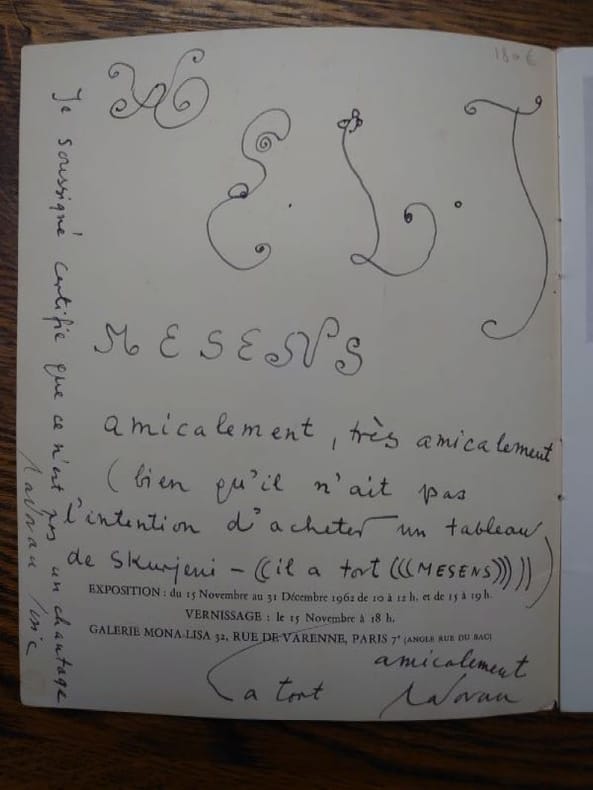 180 €
A
E. L. T
MESENS
amicalement, très amicalement
(bien qu'il n'ait pas
l'intention d'acheter un tableau
de Skurjeni – ((il a tort (((MESENS))))))
EXPOSITION : du 15 Novembre au 31 Décembre 1962 de 10 à 12 h. et de 15 à 19 h.
VERNISSAGE : le 15 Novembre à 18 h.
GALERIE MONA-LISA 32, RUE DE VARENNE, PARIS 7e (ANGLE RUE DU BAC)
amicalement
a tort Radovan
Je soussigné certifie que ce n'est pas un chantage
Radovan Ivsic